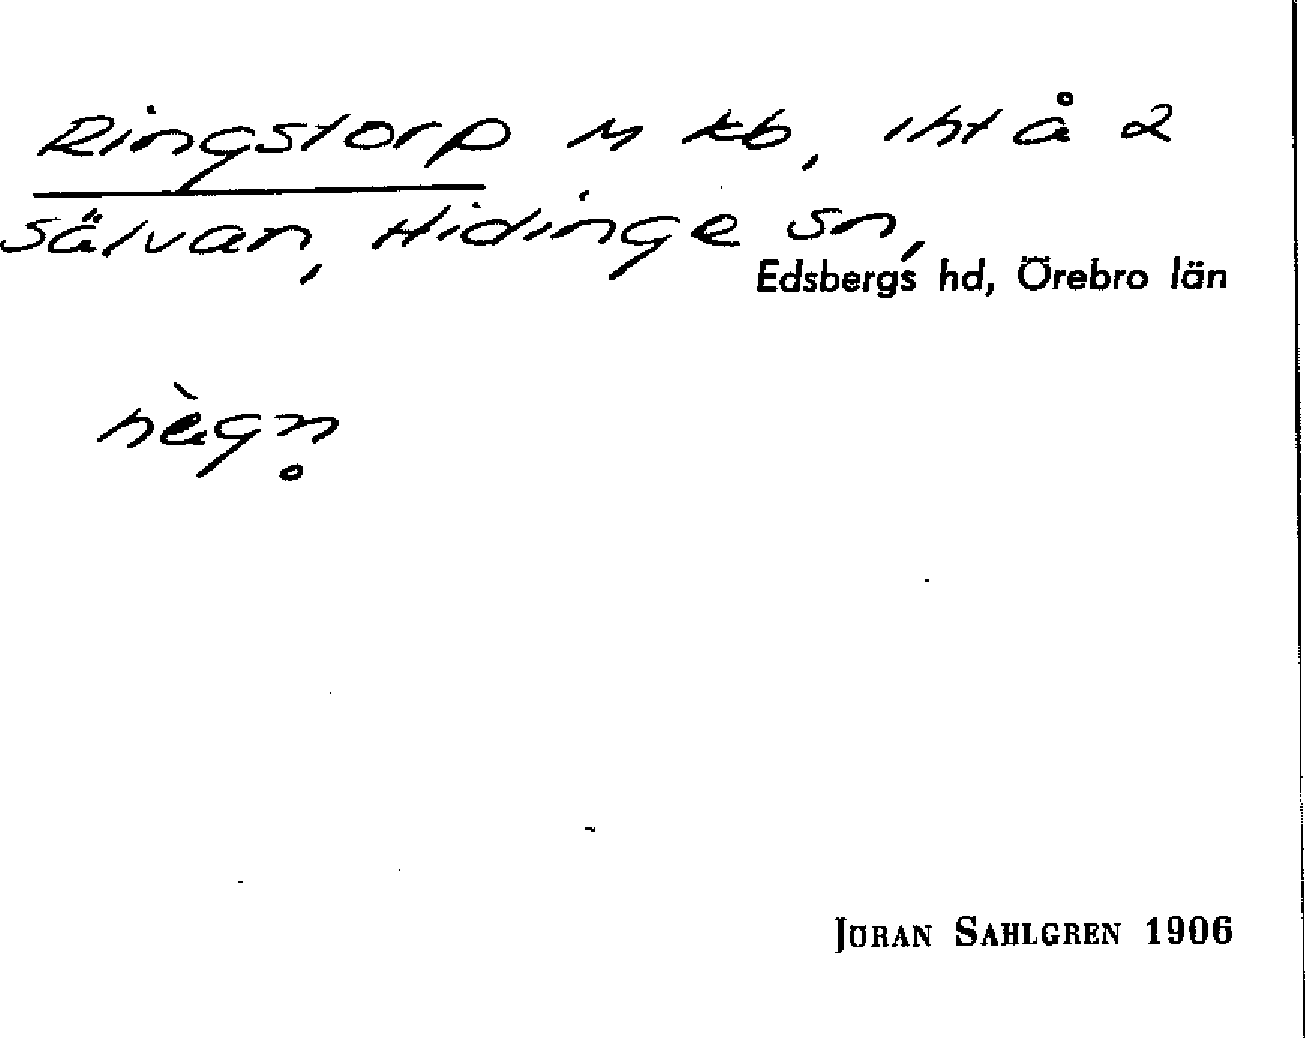 Ringstorp M kb, iht å 2
sälvan, Hidinge sn,
Edsbergs hd, Örebro län
hègn̥
JÖRAN SAHLGREN 1906